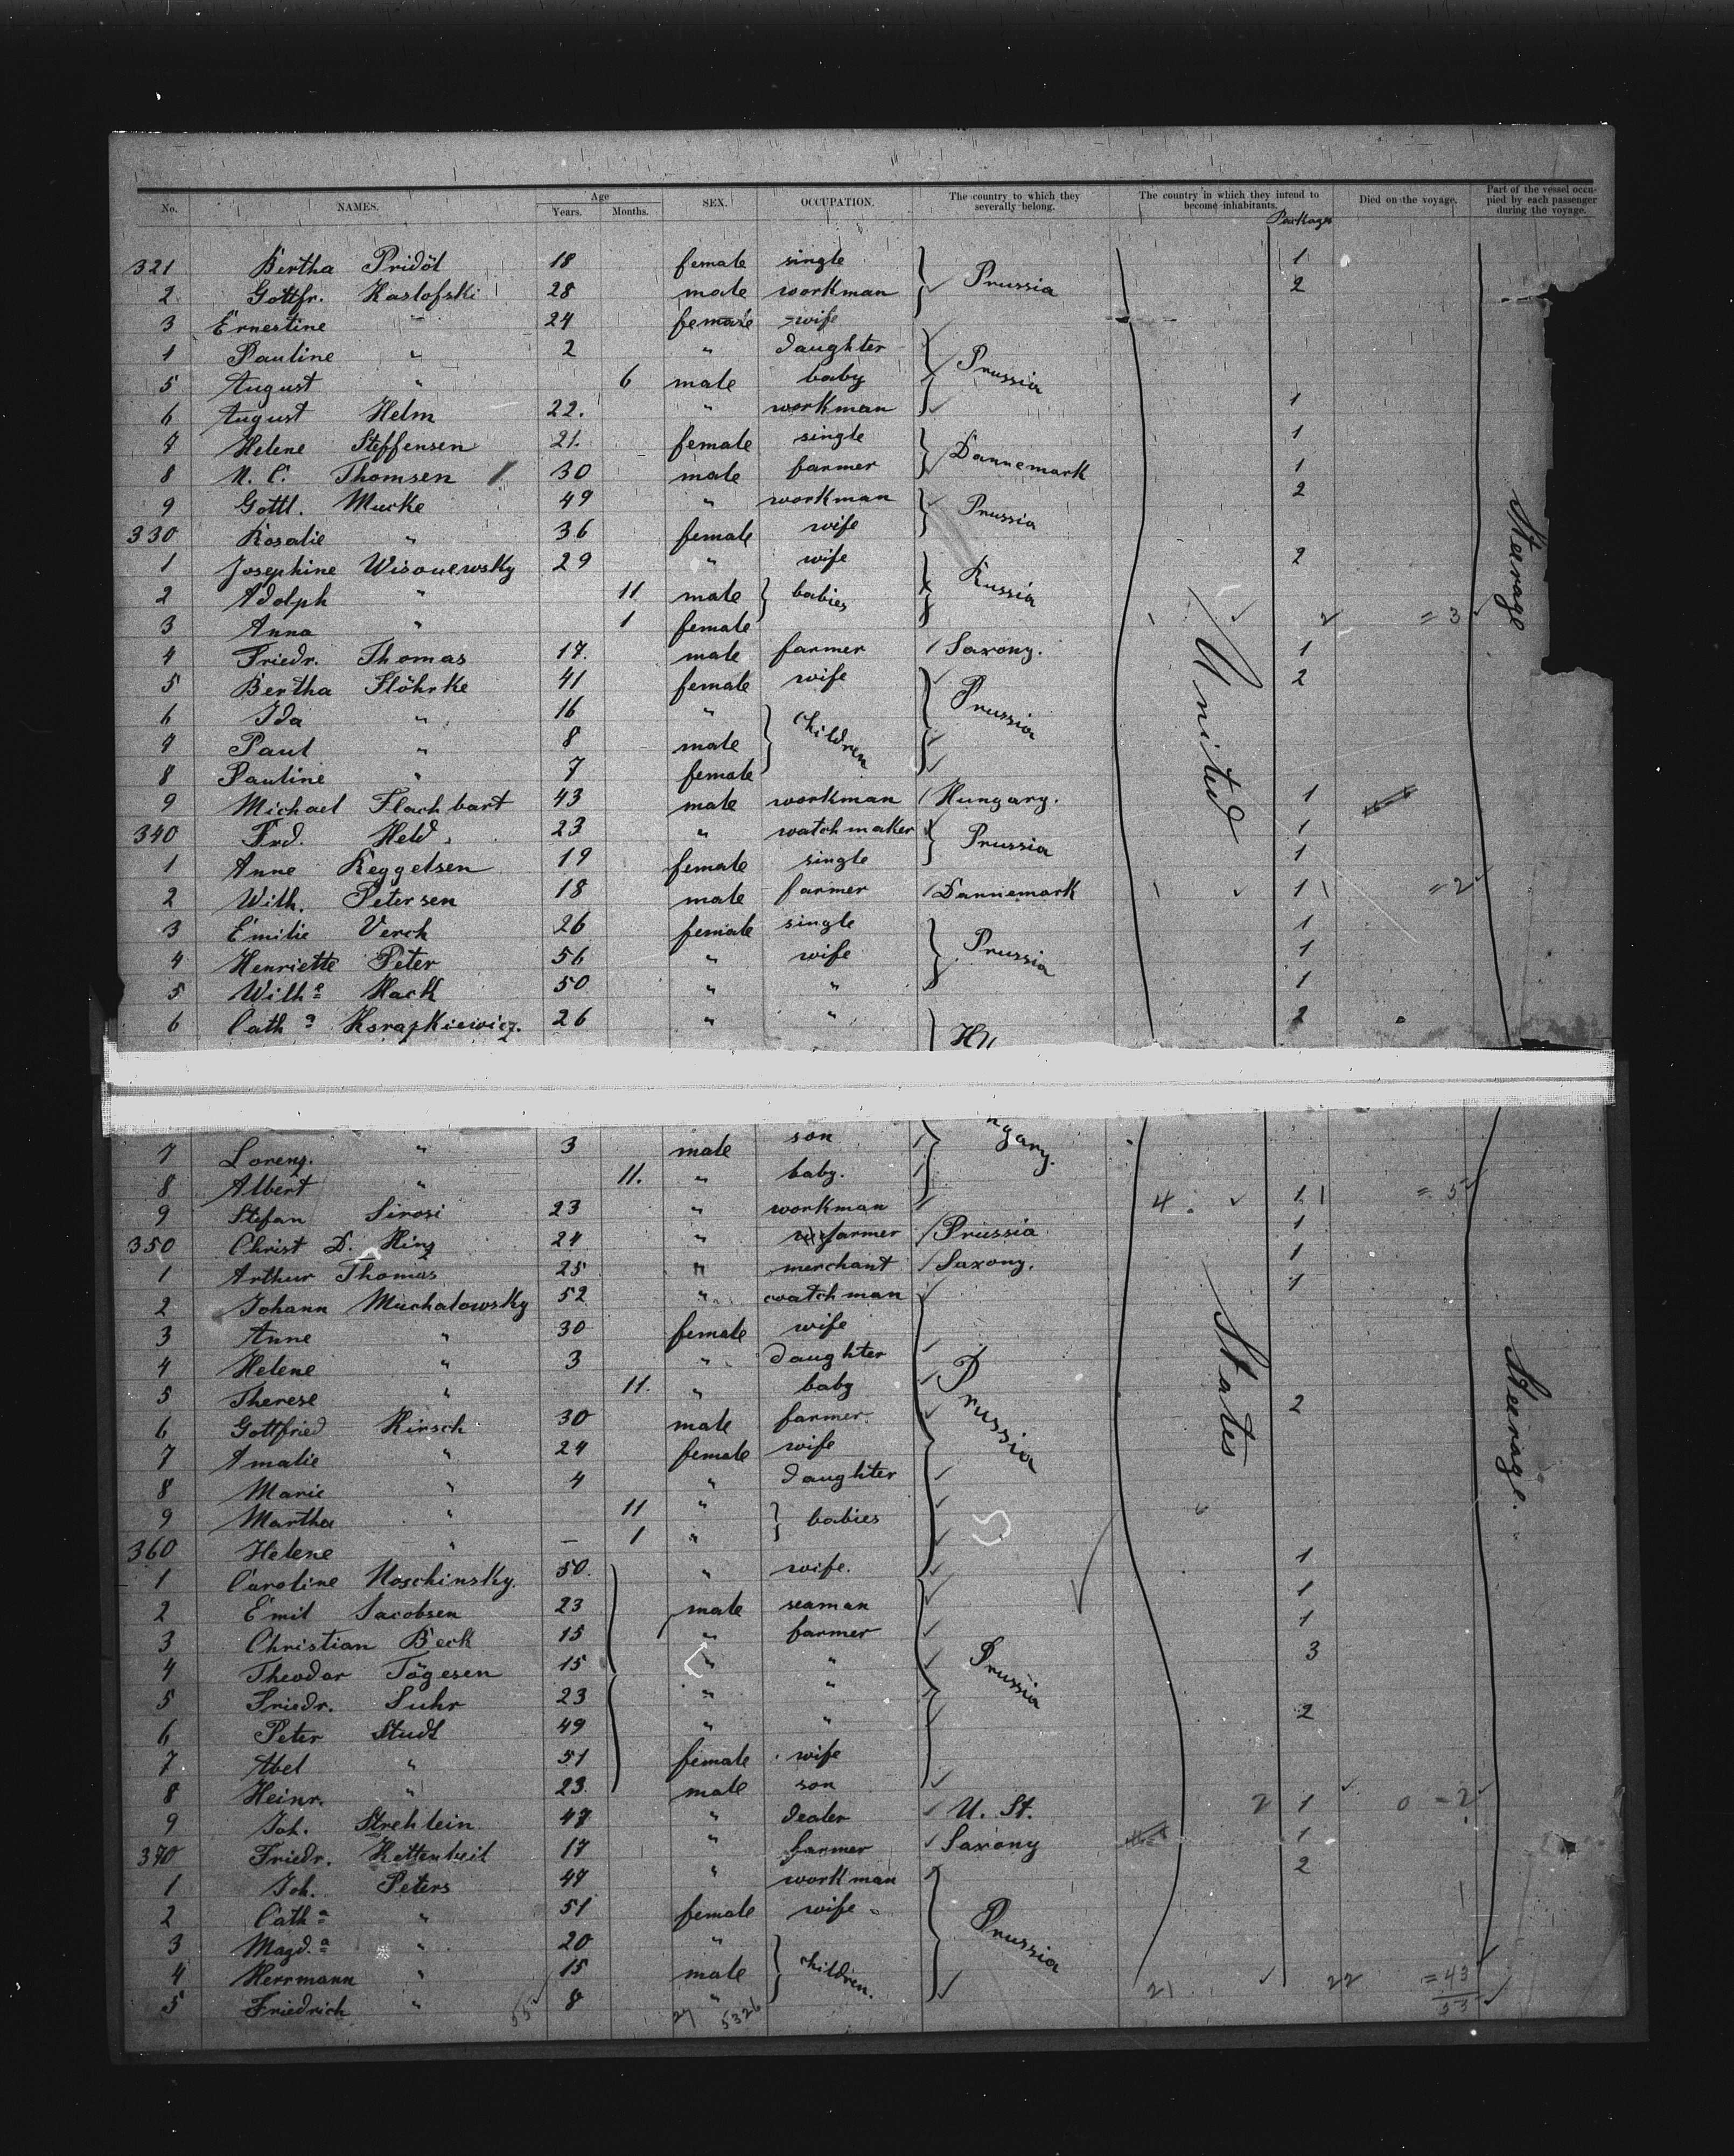 No. NAMES. Age Years. Months. SEX. OCCUPATION. The country to which they severally belong. The country in which they intend to become inhabitants. Packages Died on the voyage. Part of the vessel occupied by each passenger during the voyage.
321 Bertha Pridöt 18 female single 1
2 Gottfr. Kaslofski 28 male workman Prussia 2
3 Ernestine " 24 female wife
1 Pauline " 2 " daughter
5 August " 6 male baby Prussia
6 August Helm 22. " workman 1
7 Helene Steffensen 21. female single 1
8 N. C. Thomsen 30 male farmer Dannemark 1
9 Gottl. Mucke 49 " workman Prussia 2
330 Rosalie " 36 female wife
1 Josephine Wisouewsky 29 " wife 2
2 Adolph " 11 male babies Russia
3 Anna " 1 female = 3
4 Friedr. Thomas 17. male farmer Saxony. 1
5 Bertha Flöhrke 41 female wife 2
6 Ida " 16 " children Prussia
7 Paul " 8 male
8 Pauline " 7 female
9 Michael Flachbart 43 male workman Hungary. 1
340 Frd. Held 23 " watchmaker Prussia 1
1 Anne Reggelsen 19 female single 1
2 Wilh. Petersen 18 male farmer Dannemark 1 = 2
3 Emilie Verch 26 female single 1
4 Henriette Peter 56 " wife Prussia 1
5 Wilhª Hack 50 " " 1
6 Cathª Korazkiewicz. 26 " " Hungary. 2
United
Steerage
7 Lorenz. " 3 male son
8 Albert " 11. " baby.
9 Stefan Sirosi 23 " workman 4 1 = 5
350 Christ D. Hinz 24 " farmer Prussia 1
1 Arthur Thomas 25 " merchant Saxony. 1
2 Johann Muchalowsky 52 " watchman 1
3 Anne " 30 female wife
4 Helene " 3 " daughter
5 Therese " 11. " baby Prussia
6 Gottfried Hirsch 30 male farmer. 2
7 Amalie " 24 female wife
8 Marie " 4 " daughter
9 Martha " 11 " babies
360 Helene " – 1 "
1 Caroline Noschinsky. 50. " wife. 1
2 Emil Jacobsen 23 male seaman 1
3 Christian Beck 15 " farmer 1
4 Theodor Tögesen 15 " " Prussia 3
5 Friedr. Suhr 23 " "
6 Peter Studt 49 " " 2
7 Abel " 51 female wife
8 Heinr. " 23. male son
9 Joh. Strehlein 47 " dealer U. St. 2 1 0 = 2
370 Friedr. Kettenbeil 17 " farmer Saxony 1
1 Joh. Peters 49 " workman 2
2 Cathª " 51 female wife
3 Magd.ª " 20 " children. Prussia
4 Herrmann " 15 male
5 Friedrich " 8 "
States
Steerage.
55 27 5326 21 22 = 43
53